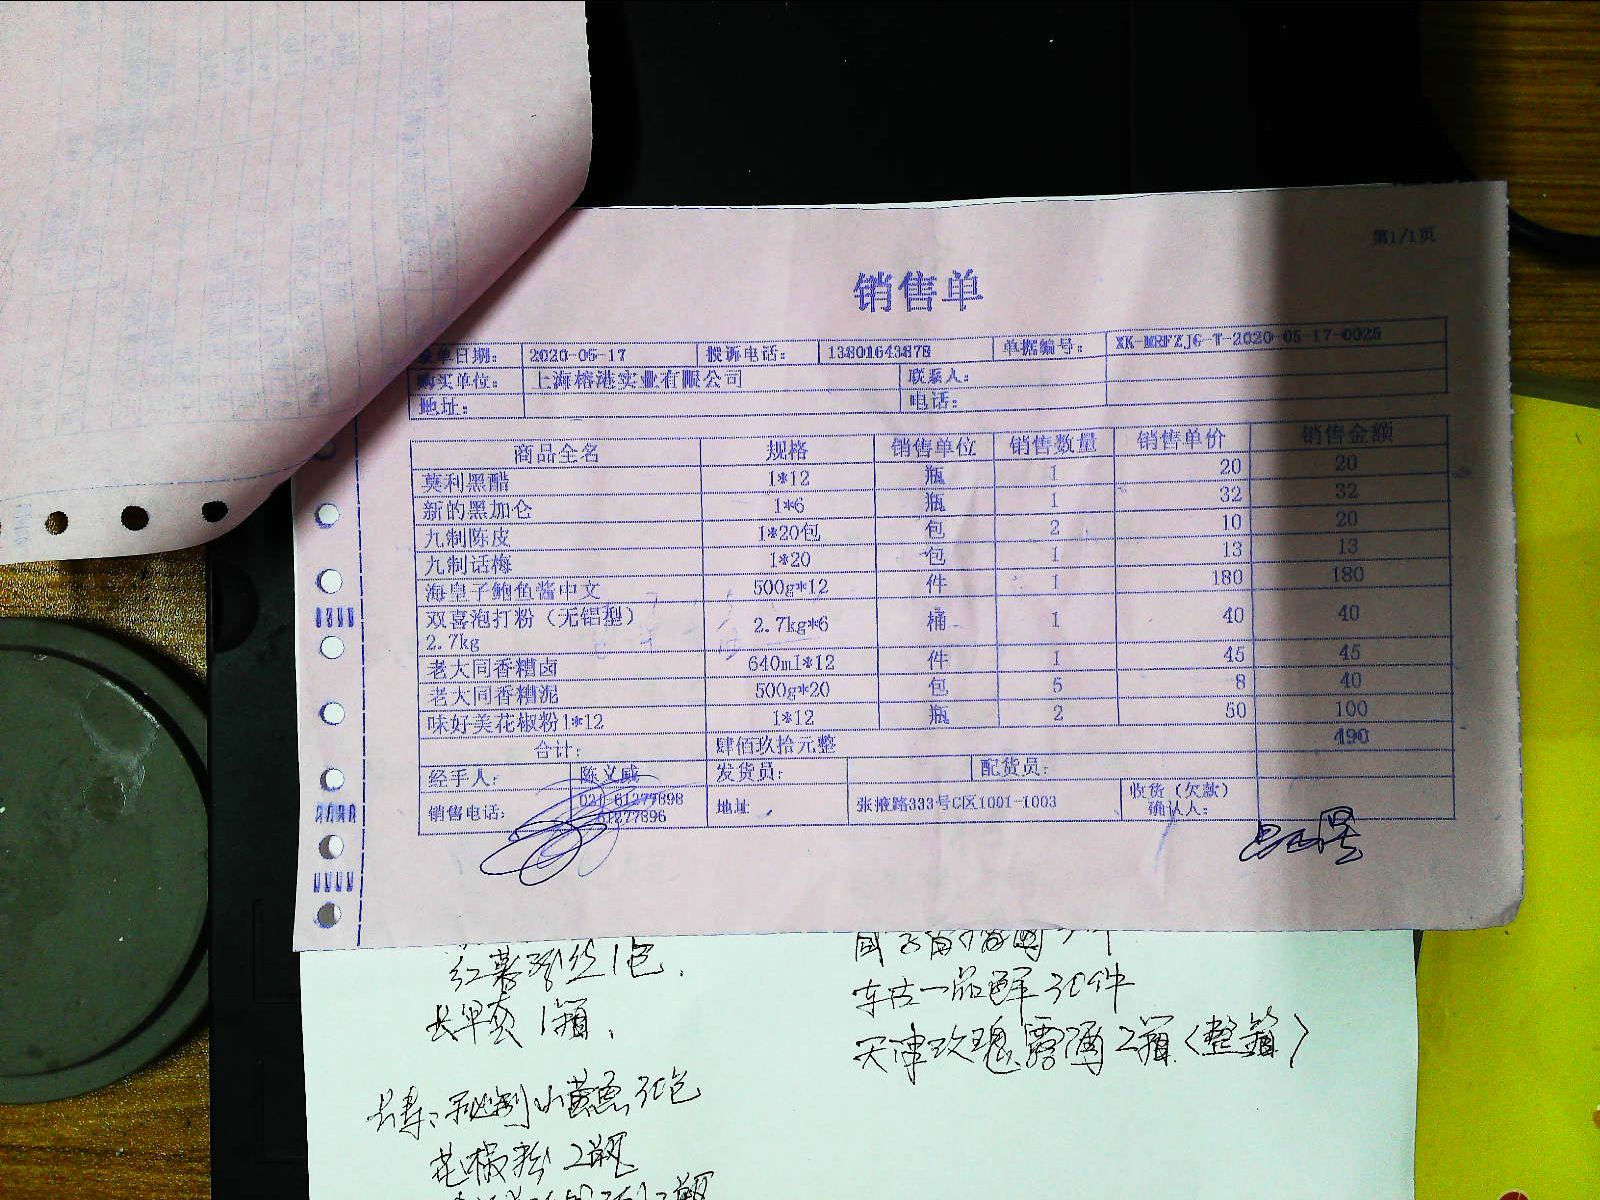 第1/1页
销售单
单日期： 2020-05-17 投诉电话： 13801643878 单据编号： XK-MRFZJG-T-2020-05-17-0025
购买单位： 上海榕港实业有限公司 联系人：
地址： 电话：
商品全名 规格 销售单位 销售数量 销售单价 销售金额
莫利黑酷 1*12 瓶 1 20 20
新的黑加仑 1*6 瓶 1 32 32
九制陈皮 1*20包 包 2 10 20
九制话梅 1*20 包 1 13 13
海皇子鲍鱼酱中文 500g*12 件 1 180 180
双喜泡打粉（无铝型） 2.7kg*6 桶 1 40 40
2.7kg
老大同香糟卤 640ml*12 件 1 45 45
老大同香糟泥 500g*20 包 5 8 40
味好美花椒粉1*12 1*12 瓶 2 50 100
合计： 肆佰玖拾元整 490
经手人： 陈义威 发货员： 配货员：
销售电话： 021-61277898 地址 张掖路333号C区1001-1003 收货（欠款）
61277896 确认人：
红薯粉丝1包.
1箱.
一品鲜 30件
天津玫瑰露酒 2箱（整箱）
小黄鱼 30包
花椒粉 2瓶